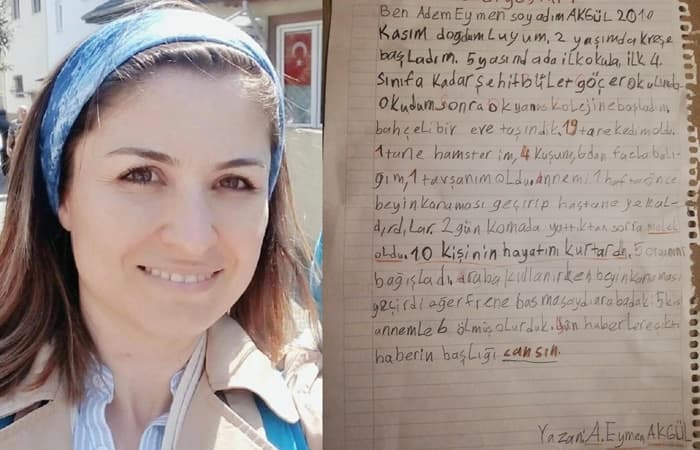 Ben Adem Eymen soyadım AKGÜL 2010
Kasım doğdumluyum, 2 yaşımda kreşe
başladım. 5 yasında da ilkokula, ilk 4.
sınıfa kadar Şehit Bület göçer okulunda
okudum sonra okyanus kolejine başladım
bahçeli bir eve taşındık. 19 tane kedim oldu.
1 tane hamster im, 4 kuşum, 6 dan fazla balı-
ğım, 1 tavşanım oldu. annemi 1 hafta önce
beyin kanaması geçirip haştane ye kal-
dırdılar. 2 gün komada yattıktan sorra melek
oldu. 10 kişinin hayatını kurtardı. 5 organını
bağışladı, araba kullanırken beyin kanaması
geçirdi ağer frene basmasaydı arabadaki 5 kişi
annemle 6 ölmüş olurduk. haberlere çıktı
haberin başlığı cansın.
Yazan: A. Eymen AKGÜL